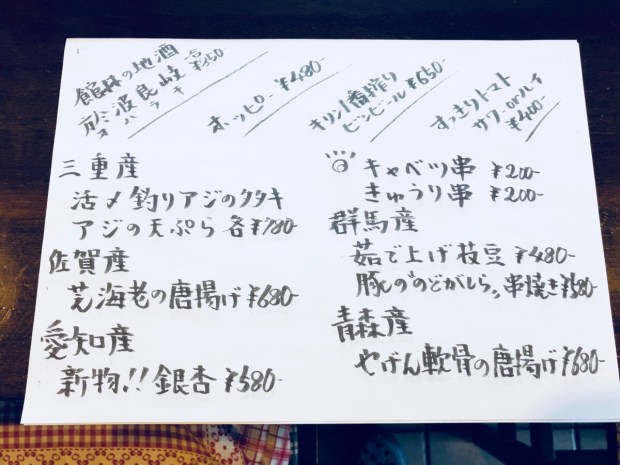 館林の地酒
於波良岐 一合
オハラキ ¥850
ホッピー ¥480-
キリン1番搾り
ビンビール ¥650-
すっきりトマト
サワー or ハイ
¥400-
三重産
活〆釣りアジのタタキ
アジの天ぷら 各¥780-
佐賀産
芝海老の唐揚げ ¥680-
愛知産
新物!! 銀杏 ¥580-
キャベツ串 ¥200-
きゅうり串 ¥200-
群馬産
茹で上げ枝豆 ¥480-
豚しの"のどがしら"串焼き ¥580-
青森産
やげん軟骨の唐揚げ ¥680-